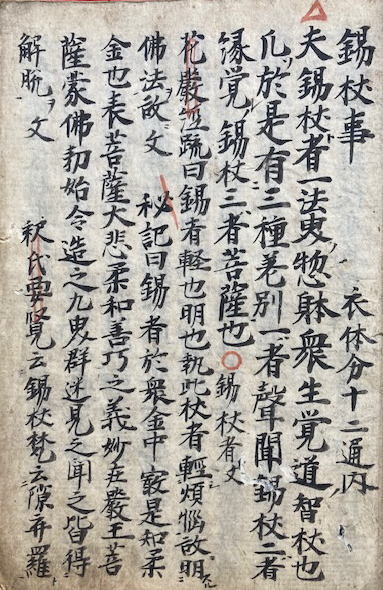 錫杖事　衣体分十二通内
夫錫杖者一法界惣躰衆生覚道智杖也
凡於是有三種差別一者聲聞錫杖二者
縁覚錫杖三者菩薩也〇錫杖者文
花嚴經疏曰錫者軽也明也執此杖者輕煩悩故明
佛法故文　秘記曰錫者於衆金中㝡是知柔
金也表菩薩大悲柔和善巧之義妙荘嚴王菩
薩蒙佛勅始令造之九界群迷見之聞之皆得
解脱ヲ文　釈氏要覧云錫杖梵云隙弃羅